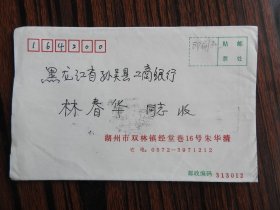 164200
贴邮
票处
黑龙江省孙吴县工商银行
林春华 同志 收
湖州市双林镇经堂巷16号朱华清
宅电:0572-3971212
邮政编码 313012